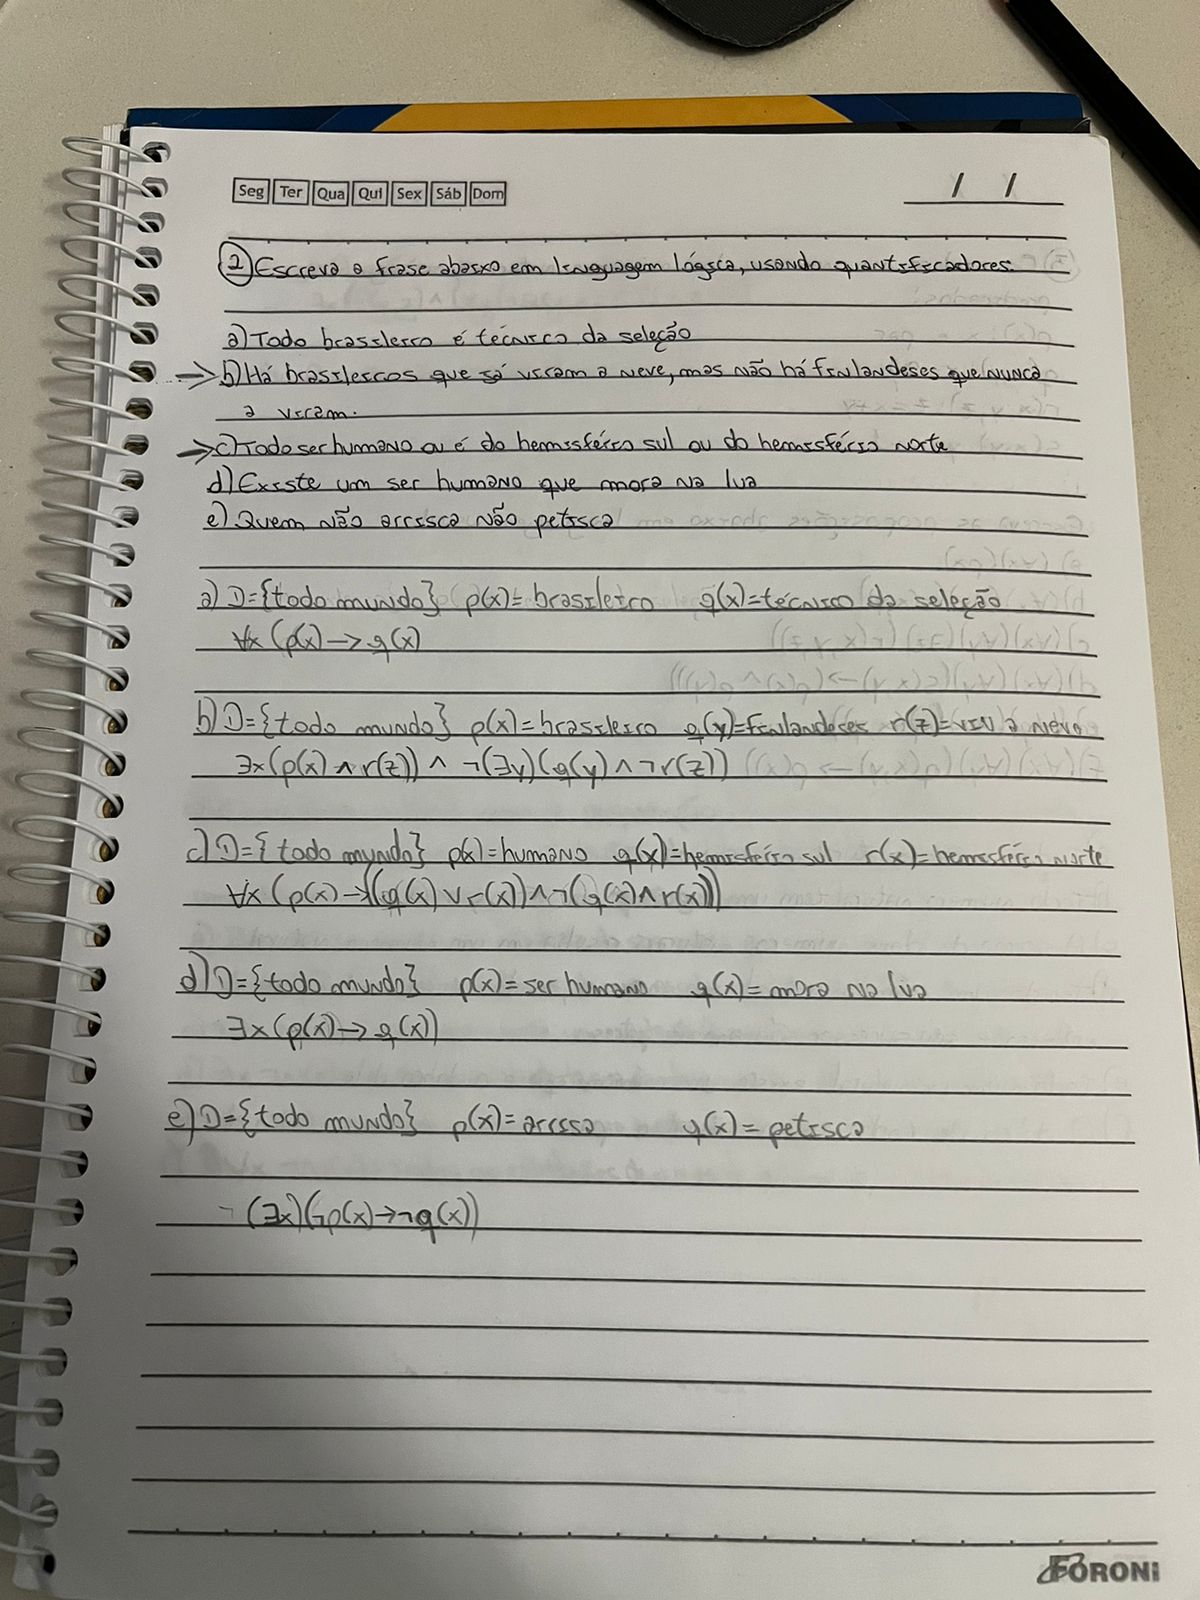 Seg Ter Qua Qui Sex Sáb Dom
/ /
2) Escreva a frase abaixo em linguagem lógica, usando quantificadores.
a) Todo brasileiro é técnico da seleção
→ b) Há brasileiros que já viram a neve, mas não há finlandeses que nunca
a viram.
→ c) Todo ser humano ou é do hemisfério sul ou do hemisfério norte
d) Existe um ser humano que mora na lua
e) Quem não arrisca não petisca
a) D={todo mundo} p(x)= brasileiro q(x)=técnico da seleção
∀x (p(x) → q(x)
b) D={todo mundo} p(x)=brasileiro q(y)=finlandeses r(z)=viu a neve
∃x (p(x) ∧ r(z)) ∧ ¬(∃y)(q(y) ∧ ¬r(z))
c) D={todo mundo} p(x)=humano q(x)=hemisfério sul r(x)=hemisférico norte
∀x (p(x) → ((q(x) ∨ r(x)) ∧ ¬(q(x) ∧ r(x))
d) D={todo mundo} p(x)= ser humano q(x)= mora na lua
∃x (p(x) → q(x))
e) D={todo mundo} p(x)= q(x)= petisca
¬ (∃x)(¬p(x) → ¬q(x))
FORONI